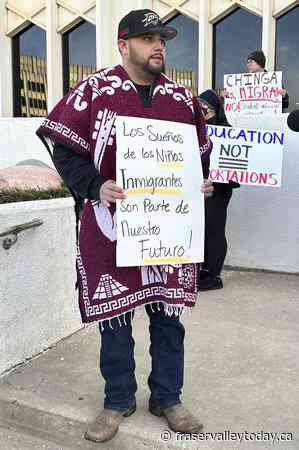 Los Sueños
de los Niños
Inmigrantes
son Parte de
Nuestro
Futuro!
CHINGA
MIGRA
NO
EDUCATION
NOT
DEPORTATIONS
fraservalleytoday.ca